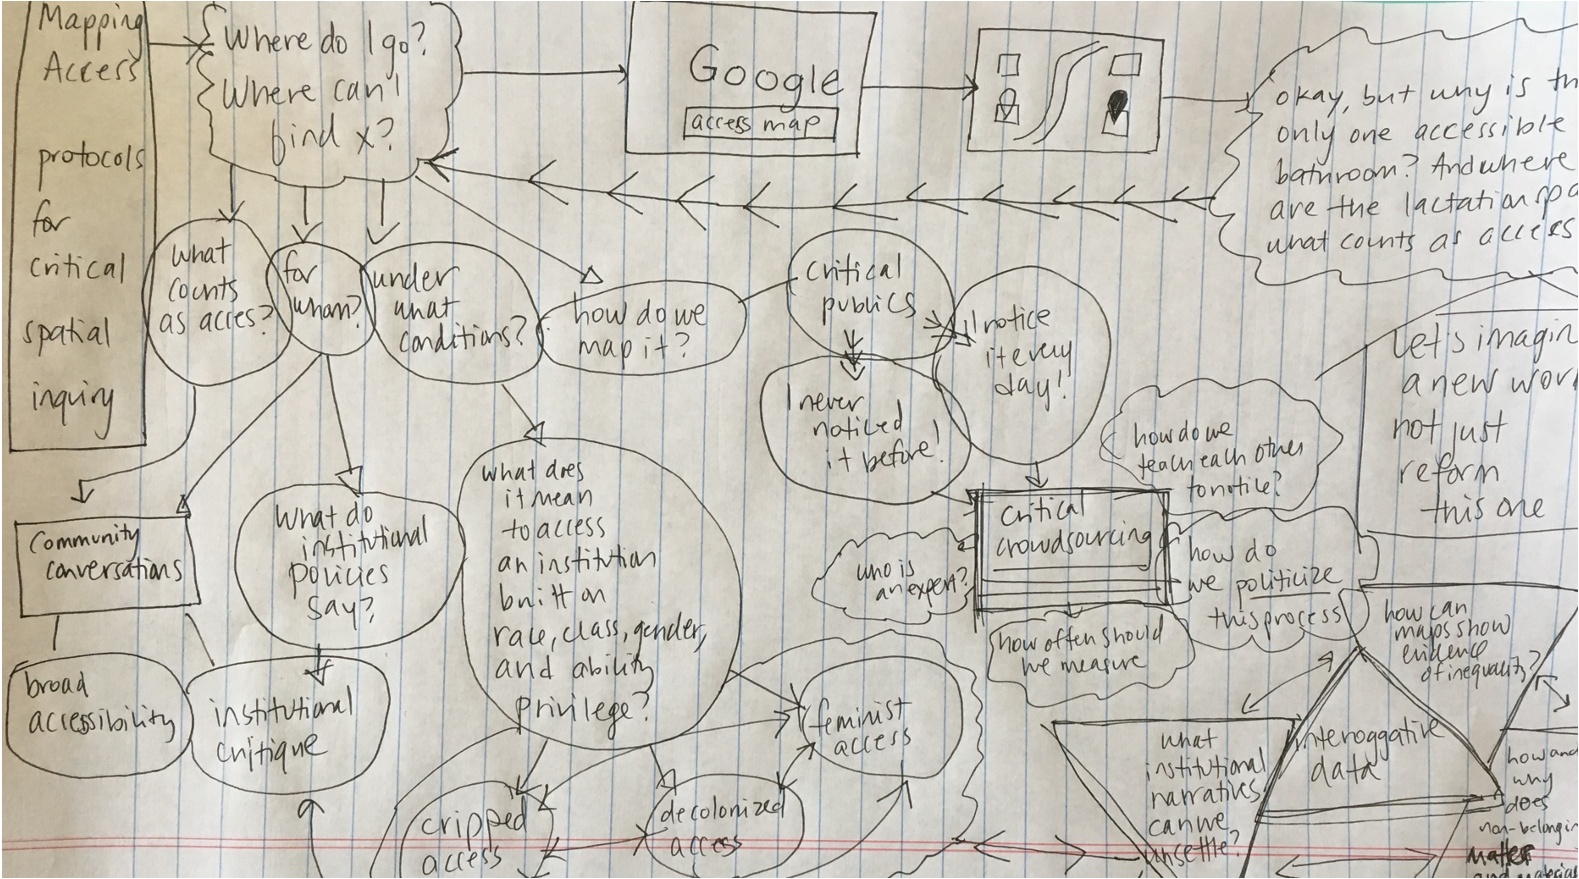 Mapping
Access
protocols
for
critical
spatial
inquiry
Where do I go?
Where can I
find x?
Google
access map
okay, but why is th
only one accessible
bathroom? And where
are the lactation spa
what counts as access
what
counts
as acces?
for
whom?
under
what
conditions?
how do we
map it?
critical
publics
I notice
it every
day!
I never
noticed
it before!
Let's imagin
a new wor
not just
reform
this one
how do we
teach each other
to notice?
critical
crowdsourcing
who is
an expert?
how do
we politicize
this process
how often should
we measure
Community
conversations
What do
institutional
policies
say?
what does
it mean
to access
an institution
built on
race, class, gender,
and ability
privilege?
broad
accessibility
institutional
critique
feminist
access
cripped
access
decolonized
access
how can
maps show
evidence
of inequality?
what
institutional
narratives
can we
unsettle?
interoggative
data
how and
why
does
non-belongin
matter
and materia